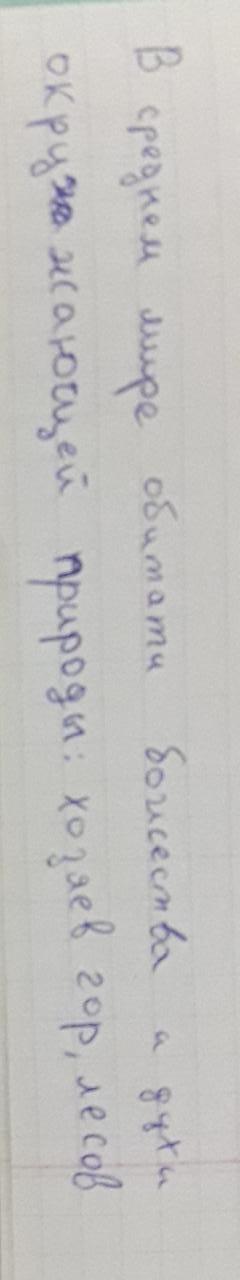 В среднем мире обитати божества и духи
окружающей природы: хозяев гор, лесов